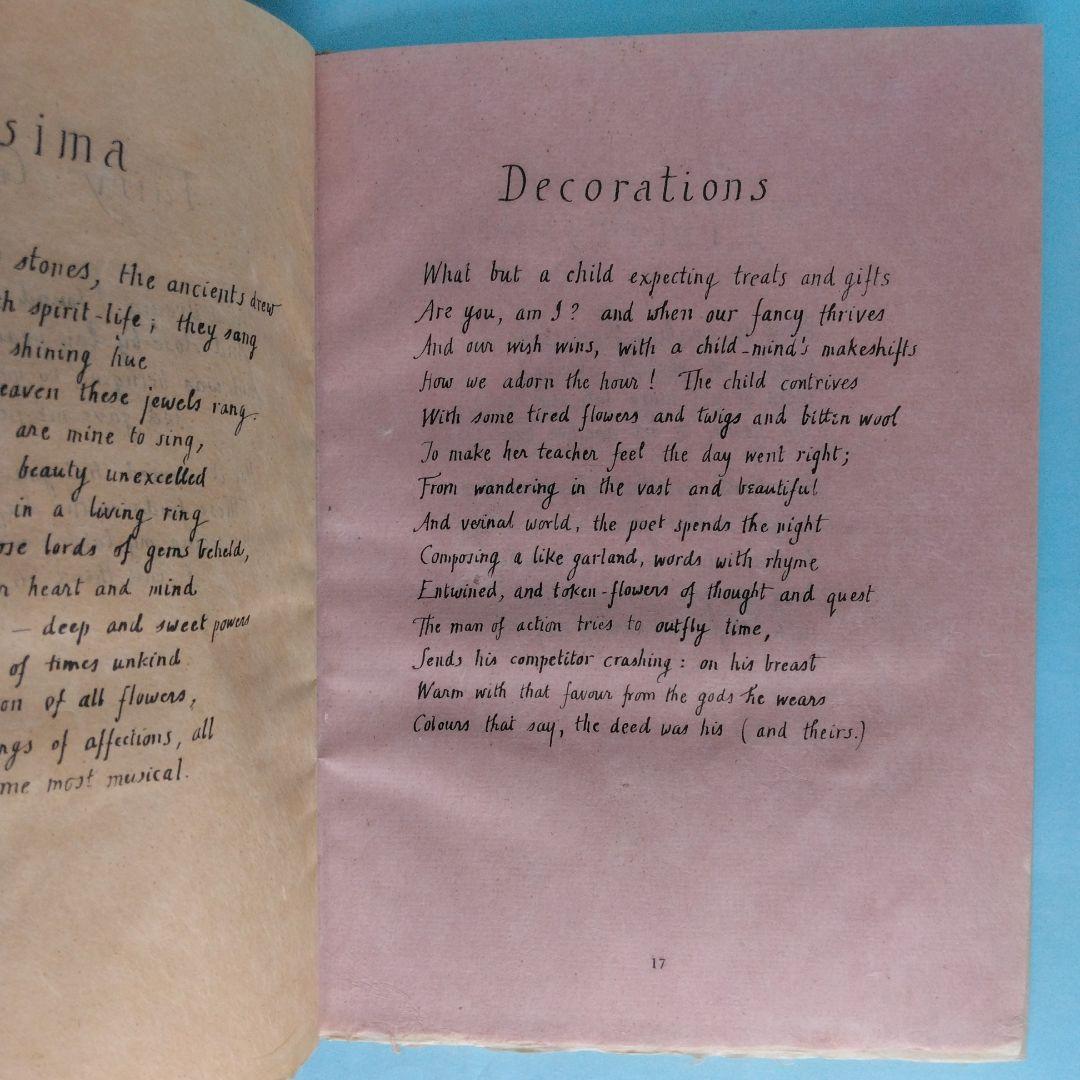 sima
stones, the ancients drew
spirit-life; they sang
shining hue
these jewels rang.
are mine to sing,
beauty unexcelled
in a living ring
lords of gems beheld,
heart and mind
— deep and sweet powers
of times unkind
of all flowers,
of affections, all
most musical.
Decorations
What but a child expecting treats and gifts
Are you, am I? and when our fancy thrives
And our wish wins, with a child-mind's makeshifts
How we adorn the hour! The child contrives
With some tired flowers and twigs and bitten wool
To make her teacher feel the day went right;
From wandering in the vast and beautiful
And vernal world, the poet spends the night
Composing a like garland, words with rhyme
Entwined, and token-flowers of thought and quest
The man of action tries to outfly time,
Sends his competitor crashing: on his breast
Warm with that favour from the gods he wears
Colours that say, the deed was his (and theirs.)
17